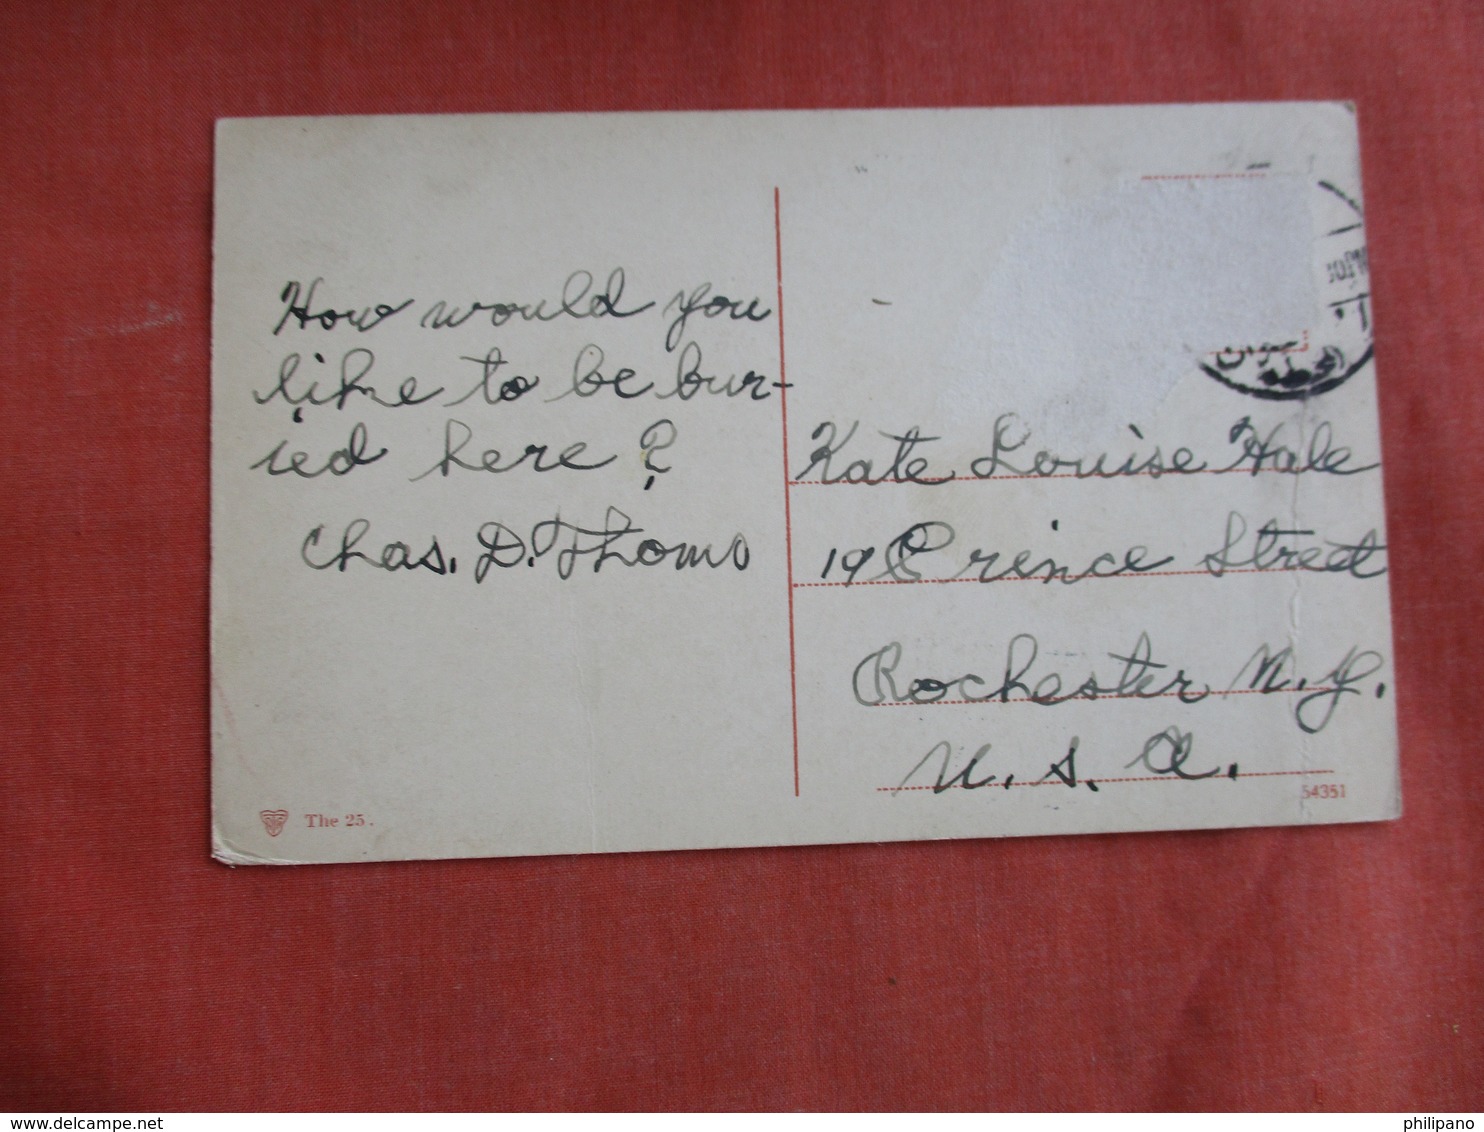 How would you
like to be bur-
ied here?
Chas. D. Thoms
Kate Louise Hale
19 Prince Street
Rochester N.Y.
U.S.A.
The 25.
54351
delcampe.net
philipano